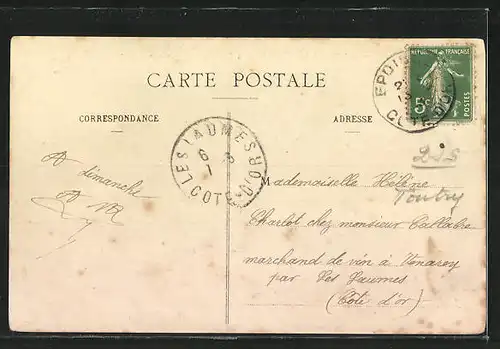 CARTE POSTALE
CORRESPONDANCE
ADRESSE
REPUBLIQUE FRANÇAISE
5c
POSTES
EPOIS
COTE D'OR
LES LAUMES
COTE D'OR
6
A dimanche
Mademoiselle Hélène
Charlot chez monsieur Callabre
marchand de vin à Venarey
par Les Laumes
(Côte d'or)